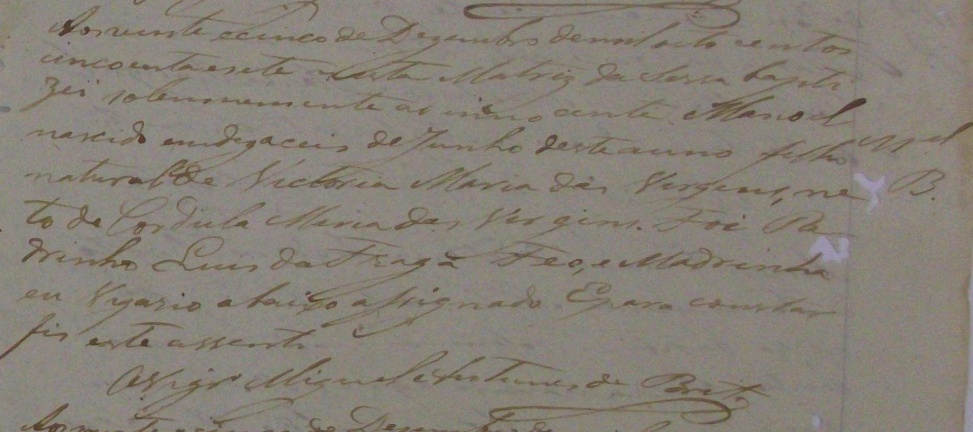 Aos vinte e cinco de Dezembro de mil oito centos
cincoenta e sete nesta Matriz da Serra bapti
zei solemnemente ao innocente Manoel
nascido em dezaceis de Junho deste anno filho
natural de Victoria Maria das Virgens, ne
to de Cordula Maria das Virgens. Foi Pa
drinho Luis da Fraga Feo, e Madrinha
eu Vigario abaixo assignado. E para constar
fis este assento.
O Vigr.º Miguel Antunes de Brito
Aos vinte e cinco de Dezembro de
M.el
B.